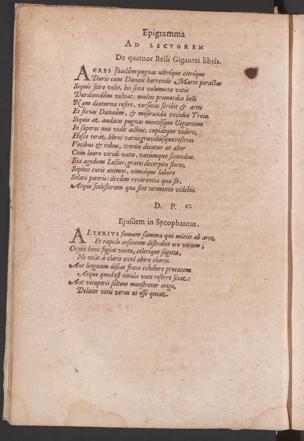 Epigramma
AD LECTOREM
De quatuor Belli Gigantei libris.
ACRES Iliadum pugnas ultrique citrique
Duris cum Danais horrendo Marte peractas
Siquis scire velit, bis sena volumina vatis
Dardanidûm volvat: multus primordia belli
Nam diuturna refert. versutus scribit & artu
Et furias Danaûm, & miseranda excidia Troiæ.
Siquis at audaces pugnas montesque Gigantum
In superos mox vidit adhuc, cupiatque videre,
Huc terat. libros variis
Vocibus & rebus, tveriis dicatur an alter
Cum lauro viridi vatu, vatumque secundus.
Eia agedum Lector, gratis decerpito flores,
Sopitos curis animos, nimioque labore
Solari poteris: devûm reverentia quæ sit,
Atque scelestorum quæ sint tormenta videbis.
D. P. C.
Eiusdem in Sycophantas.
ALTERIUS famam summa qui mittit ab arte,
Et rapido insontem distrahit ore virum;
Ocyus hinc fugiat vento, celerique sagitta,
Ni velit à claris exul abire choris.
Aut linguam discat fræno cohibere procacem
Atque quod est nitida voce referre sciat:
Aut vituperii saltem monstretur origo,
Delator vatis verus ut esse queat.